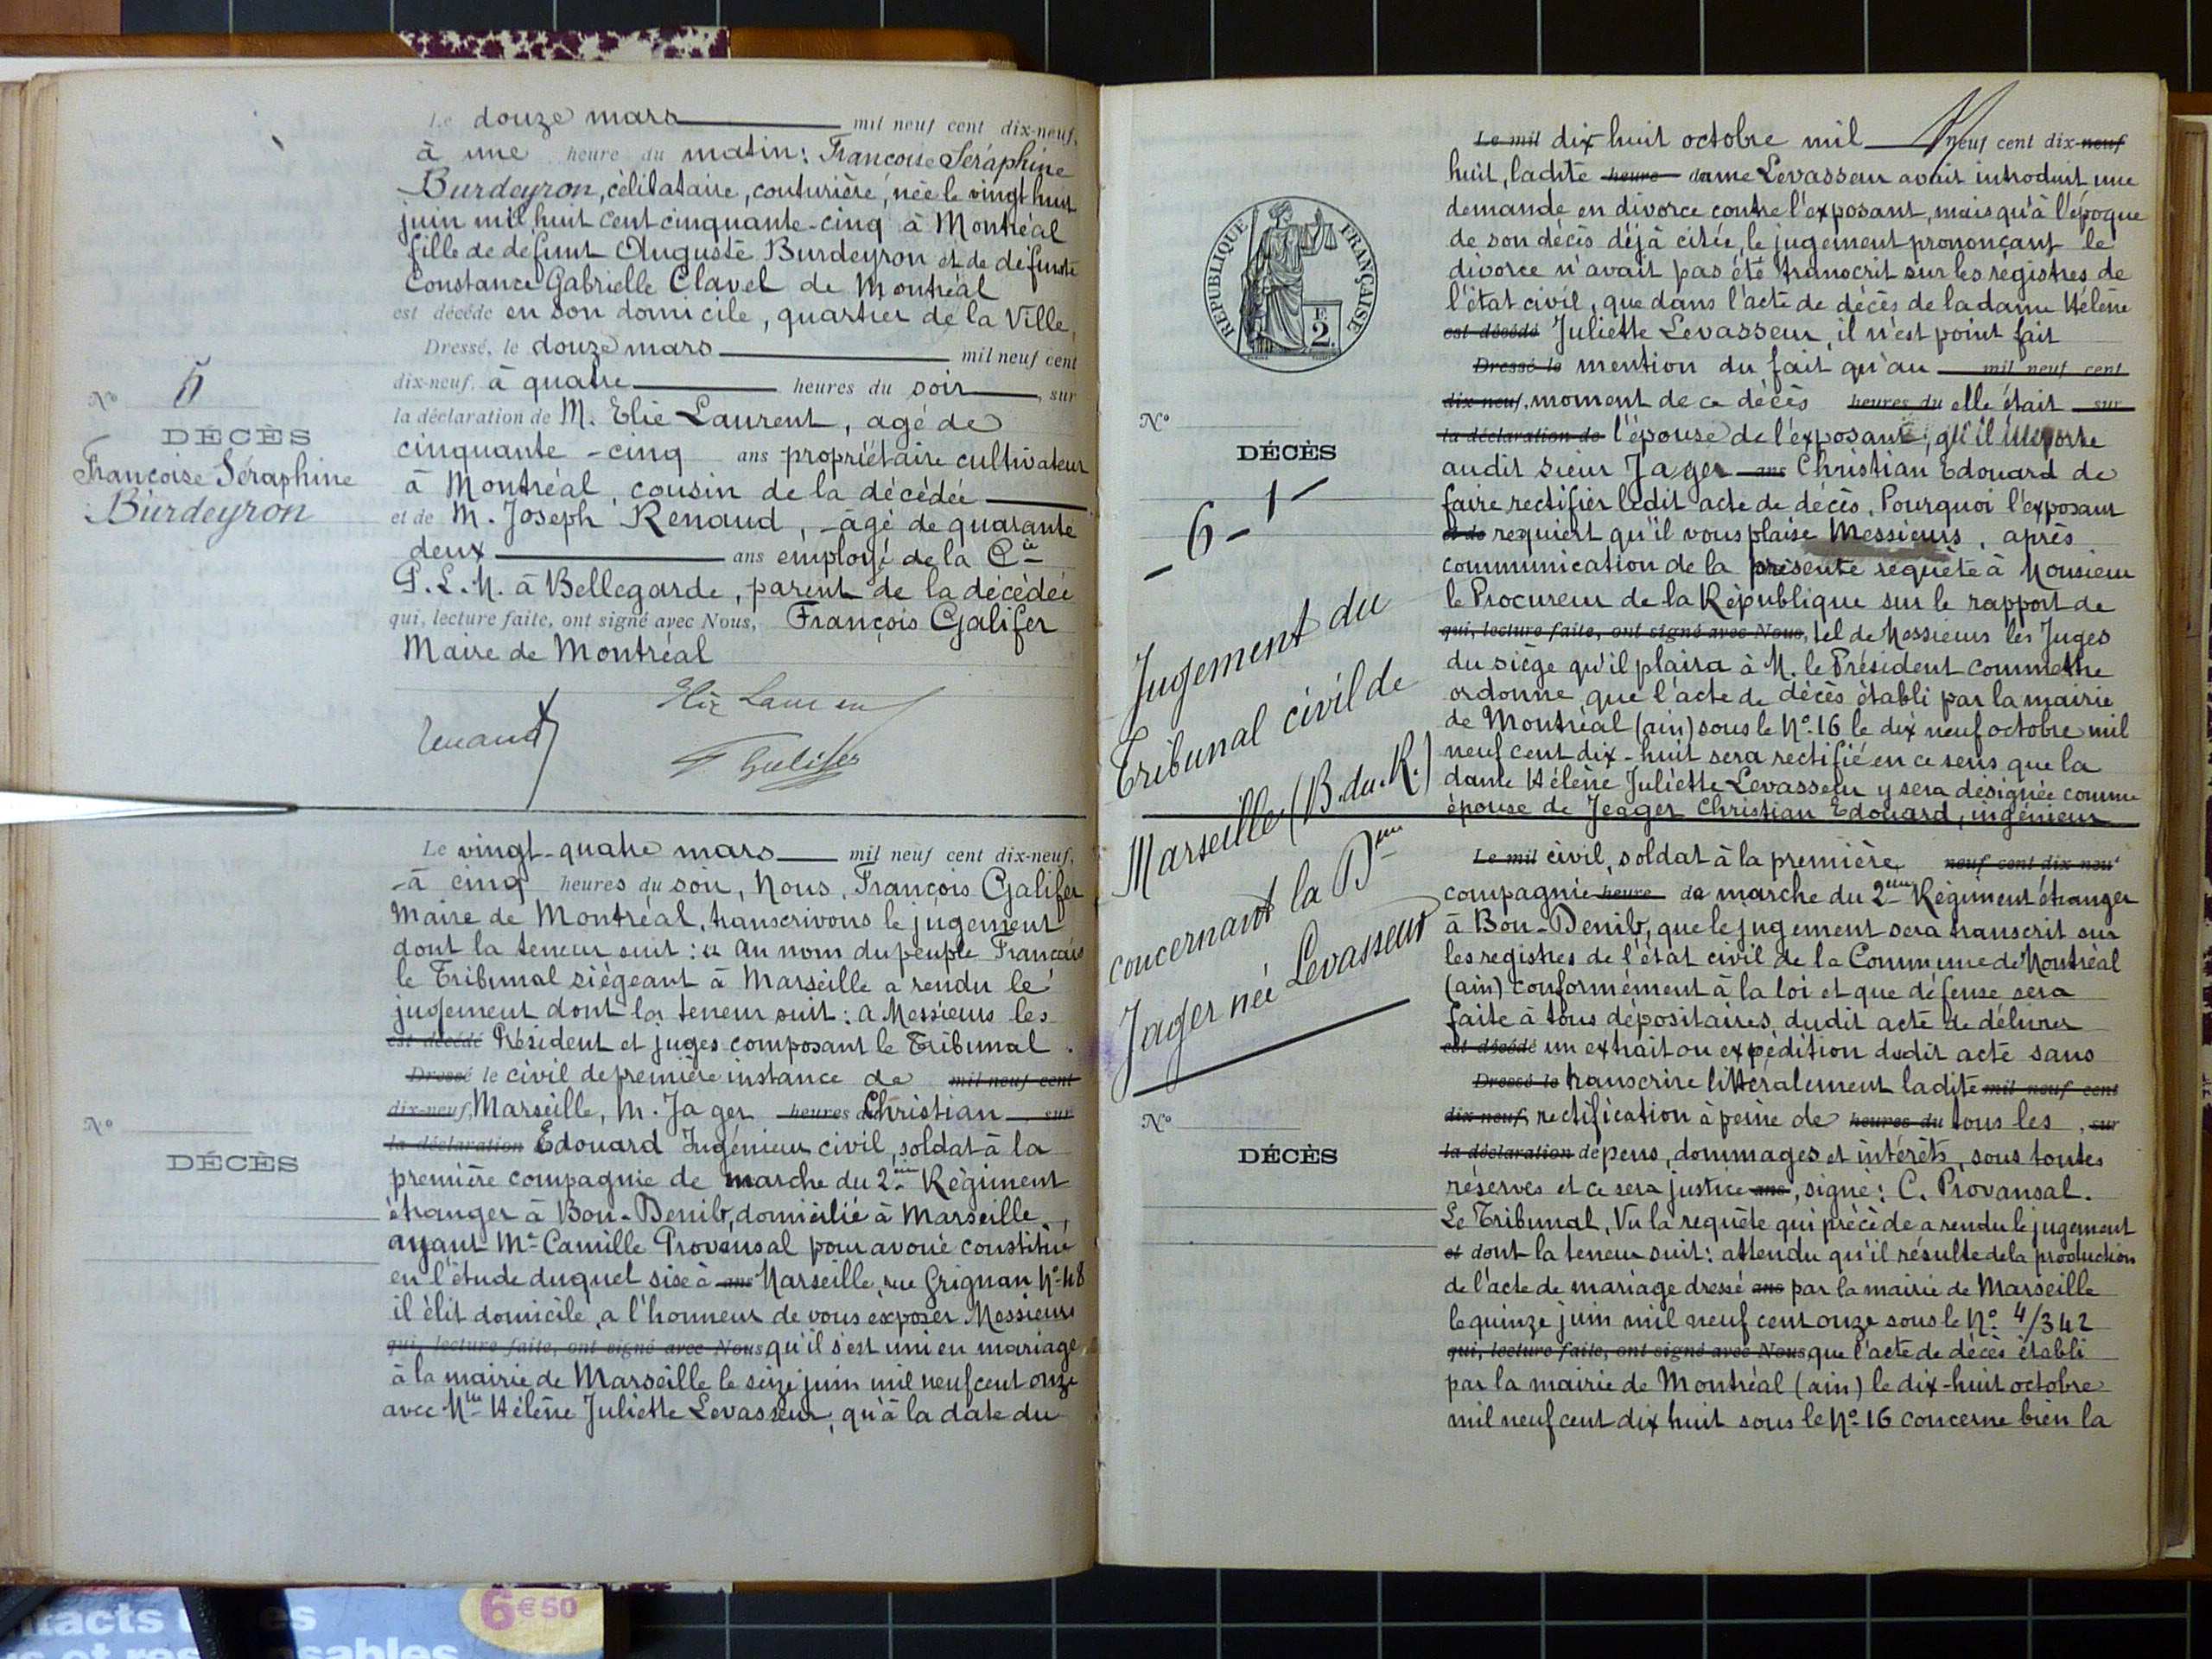 Le douze mars mil neuf cent dix-neuf,
à une heure du matin: Françoise Séraphine
Burdeyron, célibataire, couturière, née le vingt huit
juin mil huit cent cinquante-cinq à Montréal
fille de défunt Auguste Burdeyron et de défunte
Constance Gabrielle Clavel de Montréal
est décédé en son domicile, quartier de la Ville,
Dressé, le douze mars mil neuf cent
dix-neuf, à quatre heures du soir, sur
la déclaration de M. Elie Laurent, agé de
cinquante-cinq ans propriétaire cultivateur
à Montréal, cousin de la décédée
et de M. Joseph Renaud, âgé de quarante
deux ans employé de la Cie
P.L.M. à Bellegarde, parent de la décédée
qui, lecture faite, ont signé avec Nous, François Galifer
Maire de Montréal
Elie Laurent
Renaud
F Galifer
No 5
DÉCÈS
Françoise Séraphine
Burdeyron
Le vingt-quatre mars mil neuf cent dix-neuf,
à cinq heures du soir, Nous, François Galifer
Maire de Montréal, transcrivons le jugement
dont la teneur suit: « Au nom du peuple Français
le Tribunal siégeant à Marseille a rendu le
jugement dont la teneur suit: A Messieurs les
est décédé Président et juges composant le Tribunal.
Dressé le civil de première instance de mil neuf cent
dix-neuf, Marseille, M. Jager heures du Christian sur
la déclaration Edouard Ingénieur civil, soldat à la
première compagnie de marche du 2ème Régiment
étranger à Bou-Denib, domicilié à Marseille,
ayant Me Camille Provansal pour avoué constitué
en l'étude duquel sise à ans Marseille, rue Grignan No 48
il élit domicile, a l'honneur de vous exposer Messieurs
qui, lecture faite, ont signé avec Nous qu'il s'est uni en mariage
à la mairie de Marseille le seize juin mil neuf cent onze
avec Mlle Hélène Juliette Levasseur, qu'à la date du
No
DÉCÈS
RÉPUBLIQUE FRANÇAISE
E
2.
Le mil dix huit octobre mil neuf cent dix-neuf
huit, ladite heure dame Levasseur avait introduit une
demande en divorce contre l'exposant, mais qu'à l'époque
de son décès déjà citée, le jugement prononçant le
divorce n'avait pas été transcrit sur les régistres de
l'état civil, que dans l'acte de décès de la dame Hélène
est décédé Juliette Levasseur, il n'est point fait
Dressé le mention du fait qu'au mil neuf cent
dix-neuf, moment de ce décès heures du elle était sur
la déclaration de l'épouse de l'exposant; qu'il importe
audit sieur Jager ans Christian Edouard de
faire rectifier ledit acte de décès. Pourquoi l'exposant
et de requiert qu'il vous plaise Messieurs, après
communication de la présente requête à Monsieur
le Procureur de la République sur le rapport de
qui, lecture faite, ont signé avec Nous, tel de Messieurs les Juges
du siège qu'il plaira à M. le Président commettre
ordonne que l'acte de décès établi par la mairie
de Montréal (ain) sous le No 16 le dix neuf octobre mil
neuf cent dix-huit sera rectifié en ce sens que la
dame Hélène Juliette Levasseur y sera désignée comme
épouse de Jeager Christian Edouard, ingénieur
No
DÉCÈS
-6-1-
Jugement du
Tribunal civil de
Marseille (B. du R.)
concernant la Dme
Jager née Levasseur
Le mil civil, soldat à la première neuf cent dix neuf
compagnie heure de marche du 2ème Régiment étranger
à Bou-Denib, que le jugement sera transcrit sur
les registres de l'état civil de la Commune de Montréal
(ain) conformément à la loi et que défense sera
faite à tous dépositaires dudit acte de délivrer
est décédé un extrait ou expédition dudit acte sans
Dressé le transcrire littéralement ladite mil neuf cent
dix-neuf, rectification à peine de heures du tous les, sur
la déclaration dépens, dommages et intérêts, sous toutes
réserves et ce sera justice ans, signé: C. Provansal.
Le Tribunal, Vu la requête qui précède a rendu le jugement
et dont la teneur suit: attendu qu'il résulte de la production
de l'acte de mariage dressé ans par la mairie de Marseille
le quinze juin mil neuf cent onze sous le No 4/342
qui, lecture faite, ont signé avec Nous que l'acte de décès établi
par la mairie de Montréal (ain) le dix-huit octobre
mil neuf cent dix huit sous le No 16 concerne bien la
No
DÉCÈS
6€50